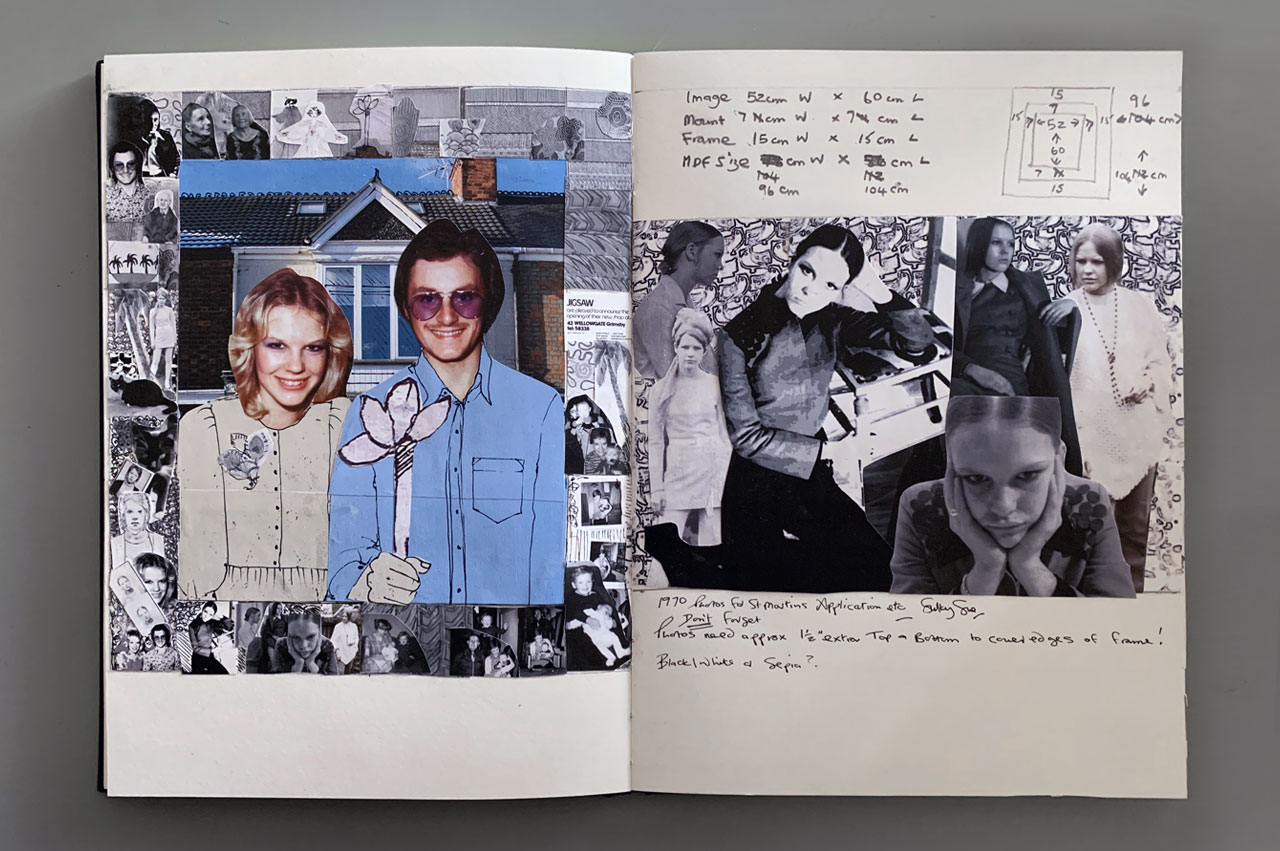 JIGSAW
are pleased to announce the
opening of their new shop at
42 WELLOWGATE Grimsby
tel: 58338
Image 52cm W x 60cm L
Mount 7 cm W x 7 cm L
Frame 15cm W x 15cm L
MDF Size cm W x cm L
104 112
96 cm 104cm
15
7
15 7 52 7 15
60
7
15
96
104 cm
104 112 cm
1970 Photos for St Martins Application etc Sulky Sue
Don't Forget
Photos need approx 1½" extra Top & Bottom to cover edges of frame!
Black/White or Sepia?